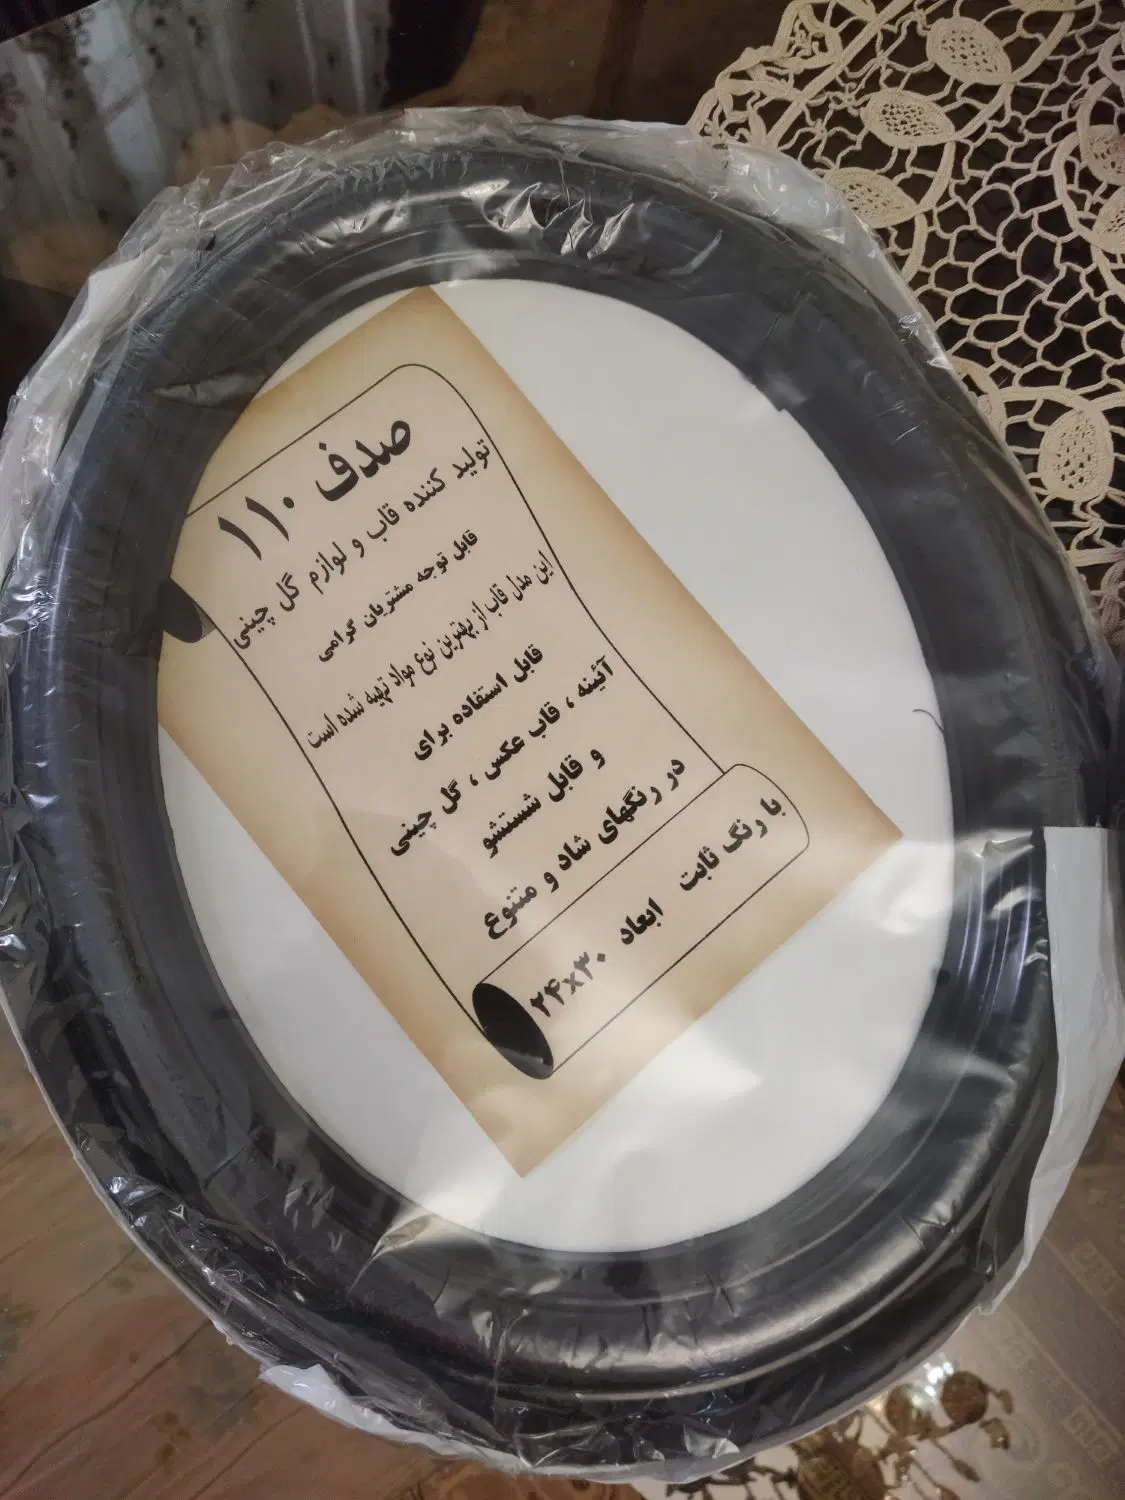 صدف ۱۱۰
تولید کننده قاب و لوازم گل چینی
قابل توجه مشتریان گرامی
این مدل قاب از بهترین نوع مواد تهیه شده است
قابل استفاده برای
آئینه ، قاب عکس ، گل چینی
و قابل شستشو
در رنگهای شاد و متنوع
با رنگ ثابت ابعاد ۲۴x۳۰